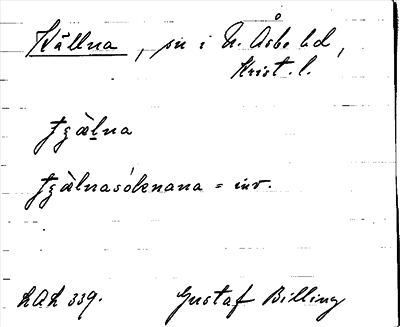 Källna, sn i N. Åsbo hd,
Krist. l.
tʒälna
tʒälnasóknana = inv.
LAL 339. Gustaf Billing